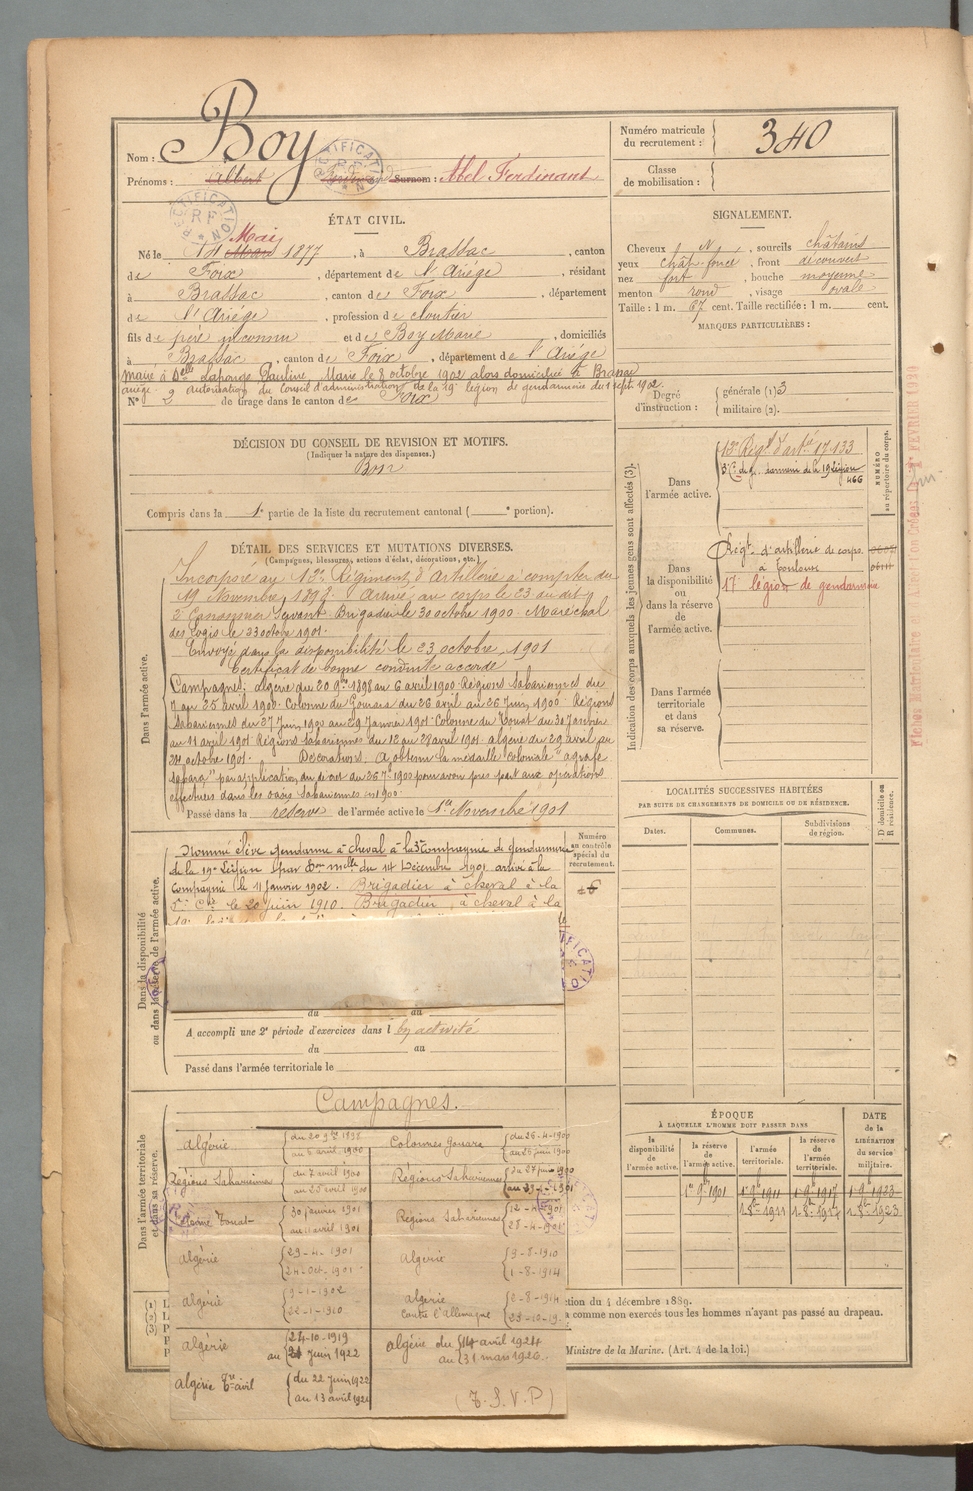 Nom : Boy
Prénoms : Albert Surnom : Abel Ferdinant
Numéro matricule du recrutement : 340
Classe de mobilisation :
ÉTAT CIVIL.
Né le 14 Mai 1877, à Brassac, canton
de Foix, département de l'Ariége, résidant
à Brassac, canton de Foix, département
de l'Ariége, profession de cloutier
fils de père inconnu et de Boy Marie, domiciliés
à Brassac, canton de Foix, département de l'Ariége
Marié à Delle Laponge Pauline Marie le 8 octobre 1902 alors domiciliée à Brassac
ariège autorisation du Conseil d'administration de la 19e légion de gendarmerie du 1 sept. 1902.
N° 2 de tirage dans le canton de Foix
SIGNALEMENT.
Cheveux N, sourcils châtains
yeux chât. foncé, front découvert
nez fort, bouche moyenne
menton rond, visage ovale
Taille : 1 m. 67 cent. Taille rectifiée : 1 m. cent.
MARQUES PARTICULIÈRES :
Degré d'instruction : générale (1) 3
militaire (2).
DÉCISION DU CONSEIL DE REVISION ET MOTIFS.
(Indiquer la nature des dispenses.)
Bon
Compris dans la 1e partie de la liste du recrutement cantonal ( e portion).
DÉTAIL DES SERVICES ET MUTATIONS DIVERSES.
(Campagnes, blessures, actions d'éclat, décorations, etc.)
Dans l'armée active.
Incorporé au 13e Régiment d'Artillerie à compter du
19 Novembre 1898. Arrivé au corps le 23 au dit
2e Canonnier Servant. Brigadier le 30 octobre 1900. Maréchal
des Logis le 23 octobre 1901.
Envoyé dans la disponibilité le 23 octobre 1901
Certificat de bonne conduite accordé
Campagnes : algérie du 20 9bre 1898 au 6 avril 1900. Régions Sahariennes du
7 au 25 avril 1900. Colonne du Gourara du 26 avril au 26 Juin 1900. Régions
Sahariennes du 27 Juin 1900 au 29 Janvier 1901. Colonne du Touat du 30 Janvier
au 11 avril 1901. Régions Sahariennes du 12 au 28 avril 1901. algérie du 29 avril au
24 octobre 1901. Décorations. A obtenu la médaille coloniale "agrafe
Sahara" par application du décret du 26 7. 1900 pour avoir pris part aux opérations
effectuées dans les oasis Sahariennes en 1900.
Passé dans la réserve de l'armée active le 1er Novembre 1901
Indication des corps auxquels les jeunes gens sont affectés (3).
NUMÉRO au répertoire du corps.
Dans l'armée active.
13e Régt d'artie 17.133
3e Cie de gendarmerie de la 19 légion
466
Dans la disponibilité ou dans la réserve de l'armée active.
Régt. d'artillerie de corps
à Toulouse
17e légion de gendarmerie
Dans l'armée territoriale et dans sa réserve.
LOCALITÉS SUCCESSIVES HABITÉES
PAR SUITE DE CHANGEMENTS DE DOMICILE OU DE RÉSIDENCE.
Dates. Communes. Subdivisions de région. D domicile ou R résidence.
Dans la disponibilité ou dans la réserve de l'armée active.
Numéro au contrôle spécial du recrutement.
Nommé élève gendarme à cheval à la 3e Compagnie de gendarmerie
de la 19e Légion (par don melle du 14 Décembre 1901 arrivé à la
Compagnie le 11 Janvier 1902. Brigadier à cheval à la
5e Cie le 20 juin 1910. Brigadier à cheval à la
du au
A accompli une 2e période d'exercices dans l en activité
du au
Passé dans l'armée territoriale le
Dans l'armée territoriale et dans sa réserve.
Campagnes.
Algérie du 20 9bre 1898 au 6 avril 1900
Colonnes Gourara du 26-4-1900 au 26 juin 1900
Régions Sahariennes du 7 avril 1900 au 25 avril 1900
Régions Sahariennes du 27 juin 1900 au 29-1-1901
Touat 30 janvier 1901 au 11 avril 1901
Régions Sahariennes 12-4-1901 28-4-1901
algérie 29-4-1901 24-Oct-1901
Algérie 9-8-1910 1-8-1914
algérie 9-1-1902 22-1-1910
Algérie contre l'Allemagne 2-8-1914 23-10-19
Algérie 24-10-1919 au 21 juin 1922
algérie du 14 avril 1924 au 31 mars 1926.
Algérie du 22 juin 1922 au 13 avril 1924
(T. S. V. P)
ÉPOQUE
À LAQUELLE L'HOMME DOIT PASSER DANS
la disponibilité de l'armée active. la réserve de l'armée active. l'armée territoriale. la réserve de l'armée territoriale.
DATE de la LIBÉRATION du service militaire.
1er 9b 1901 1-9-1911 1-9-1917 1-9-1923
1-8-1911 1-8-1917 1-8-1923
ction du 4 décembre 1889.
a comme non exercés tous les hommes n'ayant pas passé au drapeau.
Ministre de la Marine. (Art. 4 de la loi.)
RECTIFICATION
RF